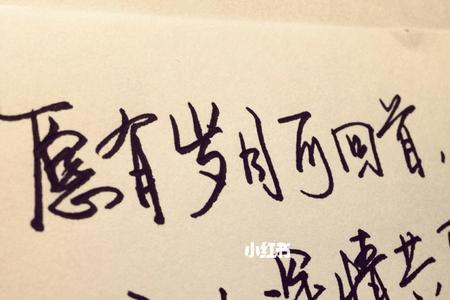 愿有岁月可回首,
小红书
深情共